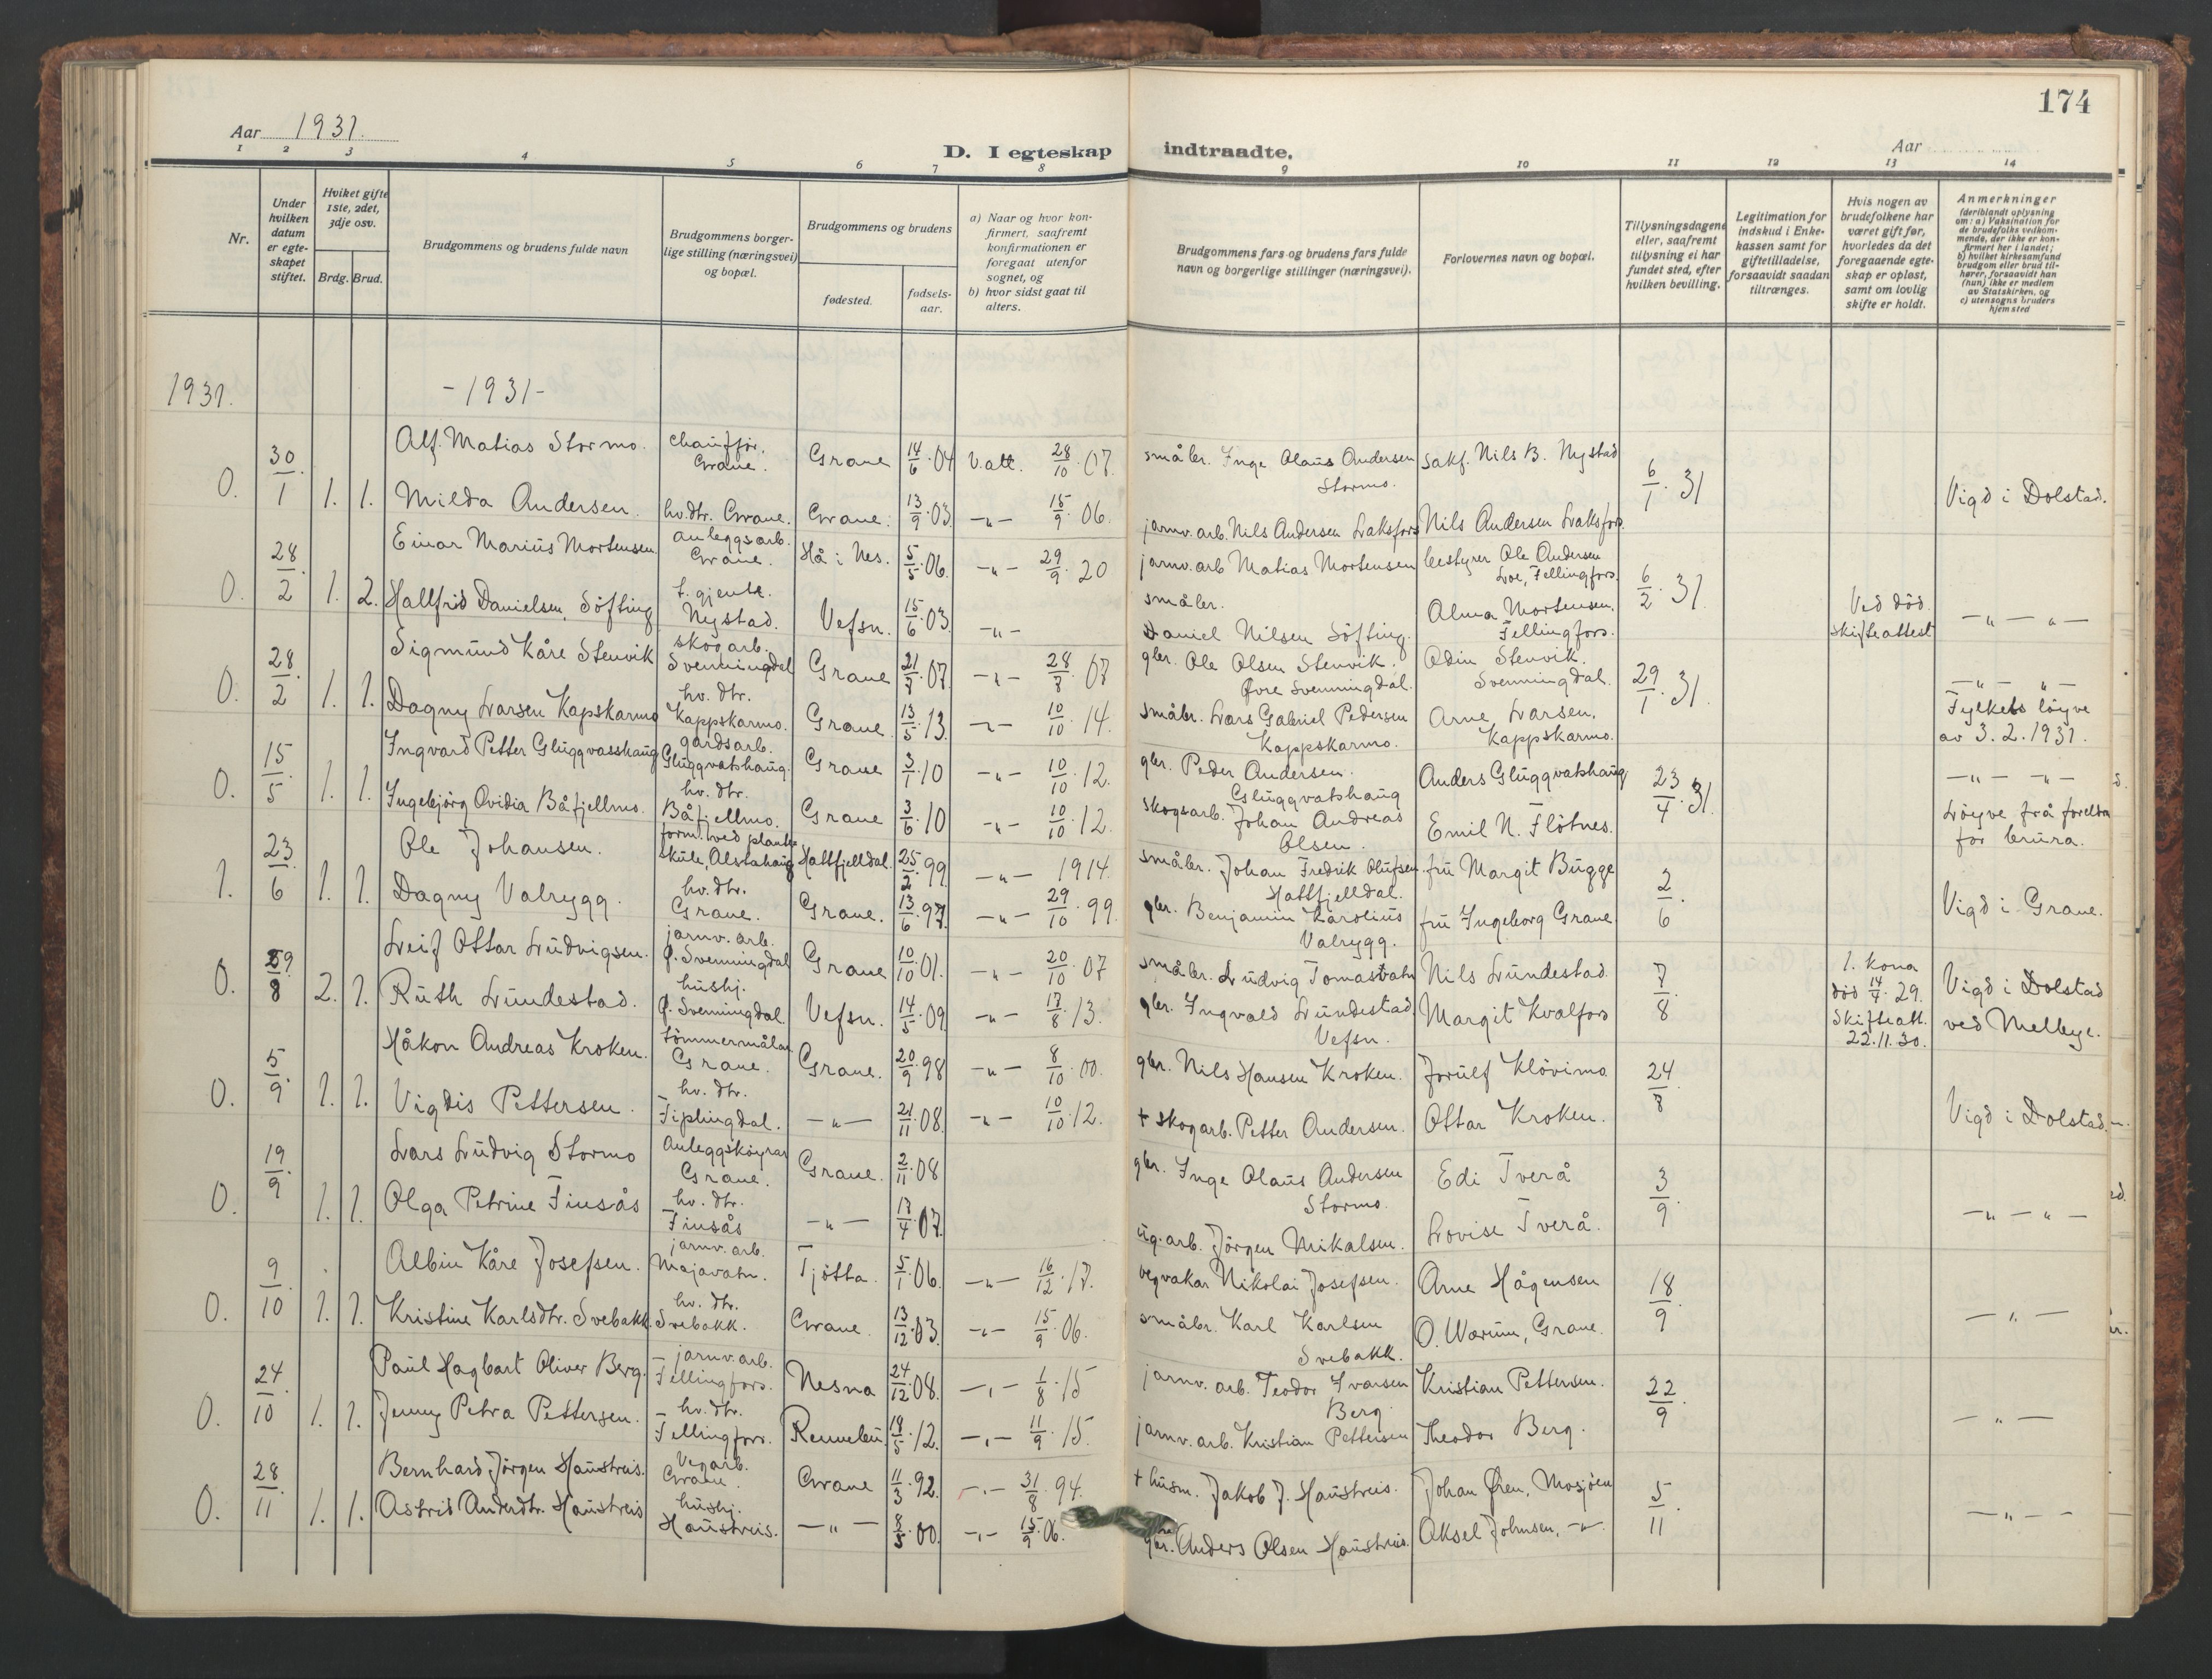 174
Aar 1931.
Aar
D. I egteskap indtraadte.
1 2 3 4 5 6 7 8 9 10 11 12 13 14
Nr.
Under hvilken datum er egteskapet stiftet.
Hvilket gifte 1ste, 2det, 3dje osv.
Brdg. Brud.
Brudgommens og brudens fulde navn
Brudgommens borgerlige stilling (næringsvei) og bopæl.
Brudgommens og brudens
fødested.
fødselsaar.
a) Naar og hvor konfirmert, saafremt konfirmationen er foregaat utenfor sognet, og
b) hvor sidst gaat til alters.
Brudgommens fars og brudens fars fulde navn og borgerlige stillinger (næringsvei).
Forlovernes navn og bopæl.
Tillysningsdagene eller, saafremt tillysning ei har fundet sted, efter hvilken bevilling.
Legitimation for indskud i Enkekassen samt for giftetilladelse, forsaavidt saadan tiltrænges.
Hvis nogen av brudefolkene har været gift før, hvorledes da det foregaaende egteskap er opløst, samt om lovlig skifte er holdt.
Anmerkninger
(deriblandt oplysning om: a) Vaksination for de brudefolks vedkommende, der ikke er konfirmert her i landet; b) hvilket kirkesamfund brudgom eller brud tilhører, forsaavidt han (hun) ikke er medlem av Statskirken, og c) utensogns bruders hjemsted
1931. -1931-
Alf. Matias Stormo. chauffør. Grane. Grane 14/6.04 V.att. 28/10.07. småbr. Inge Olaus Andersen Stormo. sakf. Nils B. Nystad
0. 30/1 1. 1. Milda Andersen. hv.dtr. Grane. Grane. 13/9.03. -"- 15/9.06. jarnv.arb. Nils Andersen Laksfors Nils Andersen Laksfors. 6/1.31 Vigd i Dolstad.
Einar Marius Mortensen. anleggsarb. Grane. Hå i Nes. 5/5.06. -"- 29/9.20 jarnv.arb Matias Mortensen bestyrer Ole Andersen Loe, Fellingfors.
0. 28/2 1. 2. Hallfrid Danielsen, Söfting t.gjente. Nystad. Vefsn. 15/6.03. -"- småbr. Daniel Nilsen Söfting. Alma Mortensen. Fellingfors. 6/2.31. Ved död. Skifteattest -"-"-
Sigmund Kåre Stenvik skogarb. Svenningdal Grane 21/7.07. -"- 28/8.07 gbr. Ole Olsen Stenvik. Øvre Svenningdal. Odin Stenvik. Svenningdal.
0. 28/2 1. 1. Dagny Larsen Kapskarmo hv. dtr. Kappskarmo. Grane 13/5.13. -"- 10/10.14. småbr. Lars Gabriel Pedersen Kappskarmo. Arne Larsen. Kappskarmo. 29/1.31. -"-"- Fylkets löyve av 3.2.1931.
Ingvard Petter Gluggvasshaug gardsarb. Gluggvatshaug. Grane 3/1.10 -"- 10/10.12. gbr. Peder Andersen. Gluggvatshaug Anders Gluggvatshaug
0. 15/5 1. 1. Ingebjörg Ovidia Båfjellmo. hv. dtr. Båfjellmo. Grane 3/6.10 -"- 10/10.12. skogsarb. Johan Andreas Olsen. Emil N. Flötnes. 23/4.31. -"- -"- Löyve frå foreldra for brura.
Ole Johansen. form. ved planteskule, Alstahaug Hattfjelldal. 25/2.99. -"- 1914. småbr. Johan Fredrik Olufsen. Hattfjelldal. fru Margit Bugge
1. 23/6 1. 1. Dagny Valrygg. hv.dtr. Grane. Grane. 13/6.97. -"- 29/10.99. gbr. Benjamin Karolius Valrygg. fru Ingeborg Grane 2/6. Vigd i Grane.
Leif Ottar Ludvigsen. jarnv.arb. Ø.Svenningdal Grane 10/10.01. -"- 20/10.07 småbr. Ludvig Tomasvatn Nils Lundestad.
0. 29/8 2. 1. Ruth Lundestad. hushj. Ø.Svenningdal. Vefsn. 14/5.09. -"- 17/8.13. gbr. Ingvald Lundestad. Vefsn. Margit Kvalfors 7/8 1. kona död 14/7.29. Skifteatt. 22.11.30. Vigd i Dolstad ved Mellbye.
Håkon Andreas Kroken. tömmermålar Grane. Grane. 20/9.98 -"- 8/10.00. gbr. Nils Hansen Kroken. Jorulf Klövimo
0. 5/9. 1. 1. Vigdis Pettersen. hv. dtr. Fiplingdal. -"- 21/11.08. -"- 10/10.12. + skogarb. Petter Andersen. Ottar Kroken. 24/8 Vigd i Dolstad.
Lars Ludvig Stormo anleggsköyrar Grane. Grane. 2/11.08 gbr. Inge Olaus Andersen Stormo. Edi Tverå
0. 19/9. 1. 1. Olga Petrine Finsås hv. dtr. Finsås -"- 17/4.07. ug.arb. Jörgen Mikalsen. Lovise Tverå. 3/9. -"-"-
Albin Kåre Josefsen. jarnv.arb. Majavatn. Tjötta. 5/1.06. -"- 16/12.17. vegvakar Nikolai Josefsen. Arne Hågensen
0. 9/10 1. 1. Kristine Karlsdtr. Svebakk. hv. dtr. Svebakk. Grane. 13/12.03. -"- 15/9.06. småbr. Karl Karlsen Svebakk. O. Warum, Grane. 18/9. -"-
Paul Hagbart Oliver Berg. jarnv.arb. Fellingfors. Nesna 24/12.08. -"- 1/8.15 jarnv. arb. Teodor Ivarsen Berg. Kristian Pettersen.
0. 24/10. 1. 1. Jenny Petra Pettersen. hv.dtr. Fellingfors. Rennebu. 18/5.12. -"- 11/9.15. jarnv.arb. Kristian Pettersen Theodor Berg. 22/9. -"-
Bernhard Jörgen Haustreis. Vegarb. Grane. Grane 11/3.92. -"- 31/8.94. + husm. Jakob J. Haustreis. Johan Øren, Mosjöen
0. 28/11 1. 1. Astrid Andersdtr. Haustreis hushj. Haustreis. -"- 8/5.00. -"- 15/9.06. gbr. Anders Olsen Haustreis. Aksel Johnsen, -"- 5/11. -"-